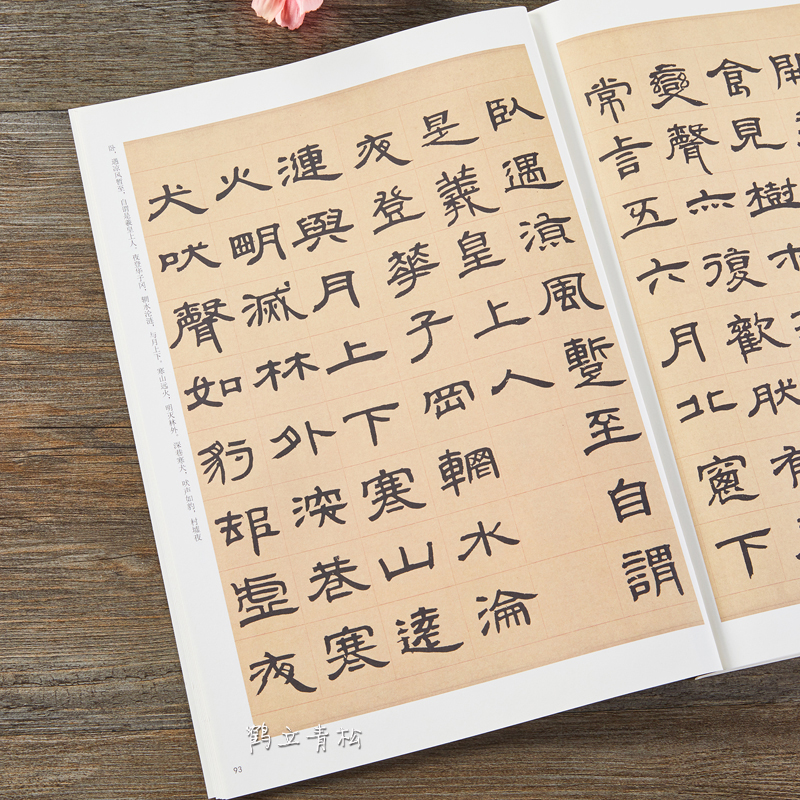 開
食見樹木
變聲亦復歡然有
常言五六月北窗下
臥遇涼風蹔至自謂
是羲皇上人
夜登華子岡輞水淪
漣與月上下寒山遠
火明滅林外深巷寒
犬吠聲如豹邨虛夜
卧，遇凉风暂至，自谓是羲皇上人。夜登华子冈，辋水沦涟，与月上下，寒山远火，明灭林外，深巷寒犬，吠声如豹，村墟夜
93
鹤立青松